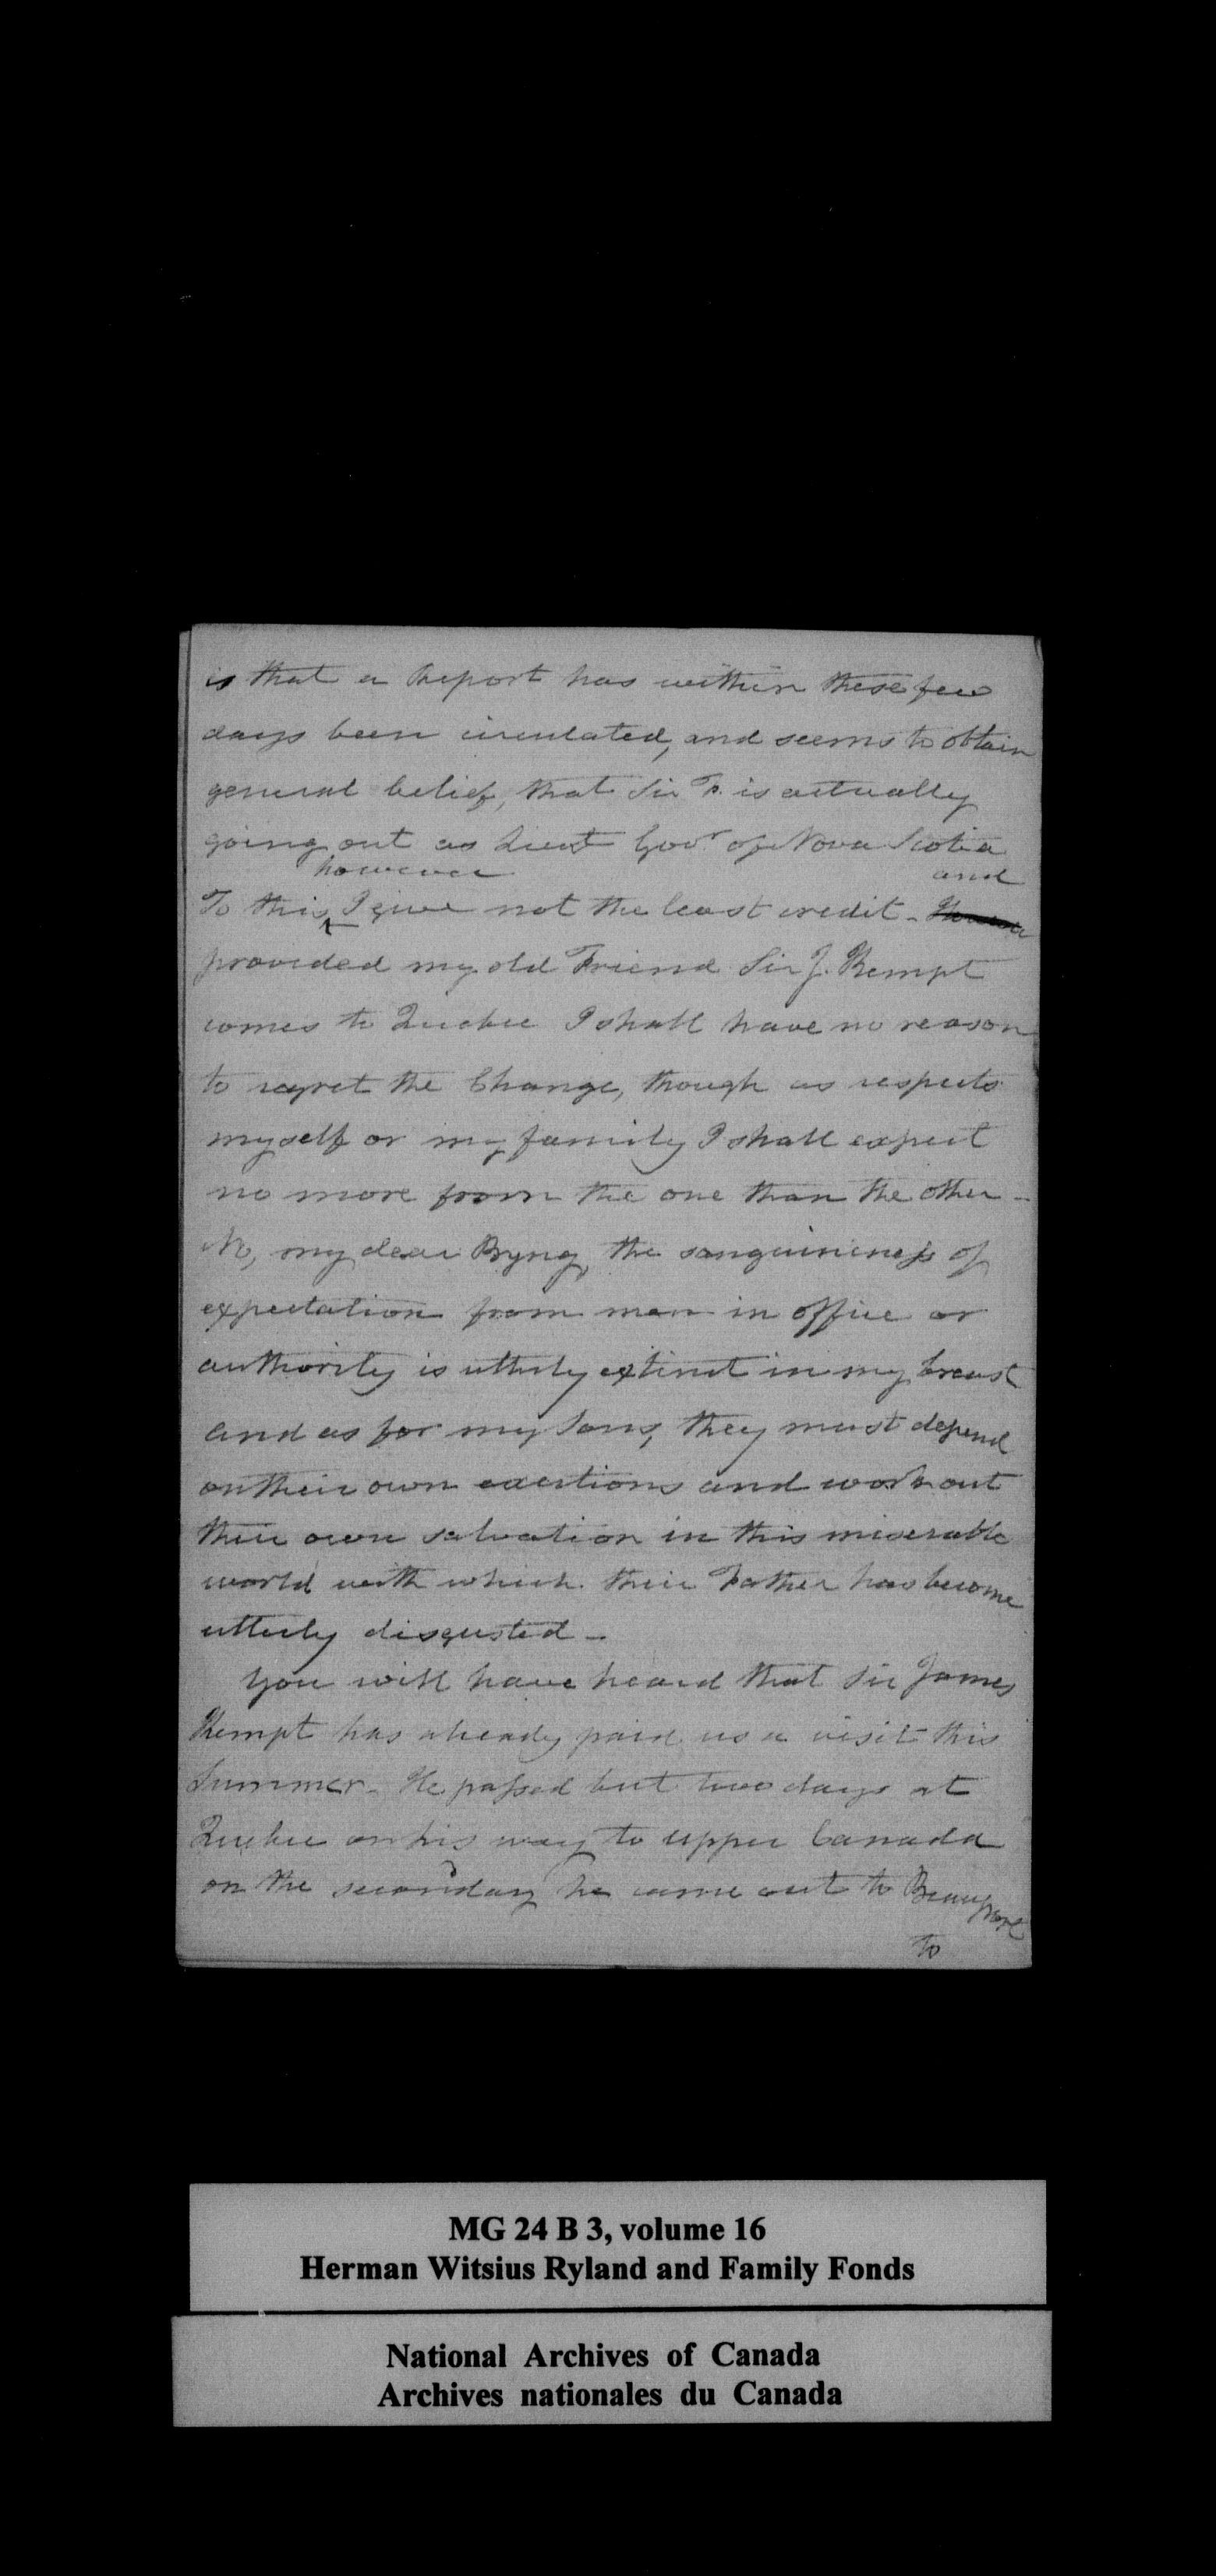 is that a Report has within these few
days been circulated, and seems to obtain
general belief, that Sir F. is actually
going out as Lieut Govr. of Nova Scotia
however and
To this I give not the least credit -
provided my old Friend Sir J. Kempt
comes to Quebec I shall have no reason
to regret the Change, though as respects
myself or my family I shall expect
no more from the one than the other -
No, my dear Byng, the sanguineness of
expectation from men in office or
authority is utterly extinct in my breast
and as for my Sons, they must depend
on their own exertions and work out
their own salvation in this miserable
world with which their Father has become
utterly disgusted -
You will have heard that Sir James
Kempt has already paid us a visit this
Summer - He passed but two days at
Quebec on his way to upper Canada
on the second day he came out to Beauport
to
MG 24 B 3, volume 16
Herman Witsius Ryland and Family Fonds
National Archives of Canada
Archives nationales du Canada